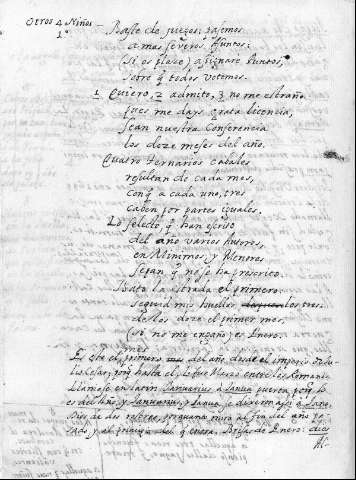 Otros 4 Niños —
1º
Baste de juegos; pasemos
a mas severos assuntos:
si os place, asignare puntos,
sobre q todos votemos.
1 Quiero, 2 admito, 3 no me estraño
pues me days grata licencia,
sean nuestra conferencia
los doze meses del año.
Cuatro ternarios cabales
resultan de cada mes,
con q a cada uno, tres
caben por partes iguales.
Lo selecto q han escrito
del año varios Autores,
en Minimos, y Menores
sepan q no se ha
la estrada el primero.
seguid mis huellas los tres.
destos doze el primer mes
(si no me engaño) es Enero.
Es este el primero mes del año, desde el imperio de Ju-
lio Cesar; porq hasta el lo fue Marzo entre los Romanos
Llamose en latin Januarius a Janua puerta, porq lo
es del año, y Januarius, y Janua, se dixeron a Jano,
Dios de dos rostros, porq uno mira al fin del año pa-
sado y al principio del q entra. de Enero: dias